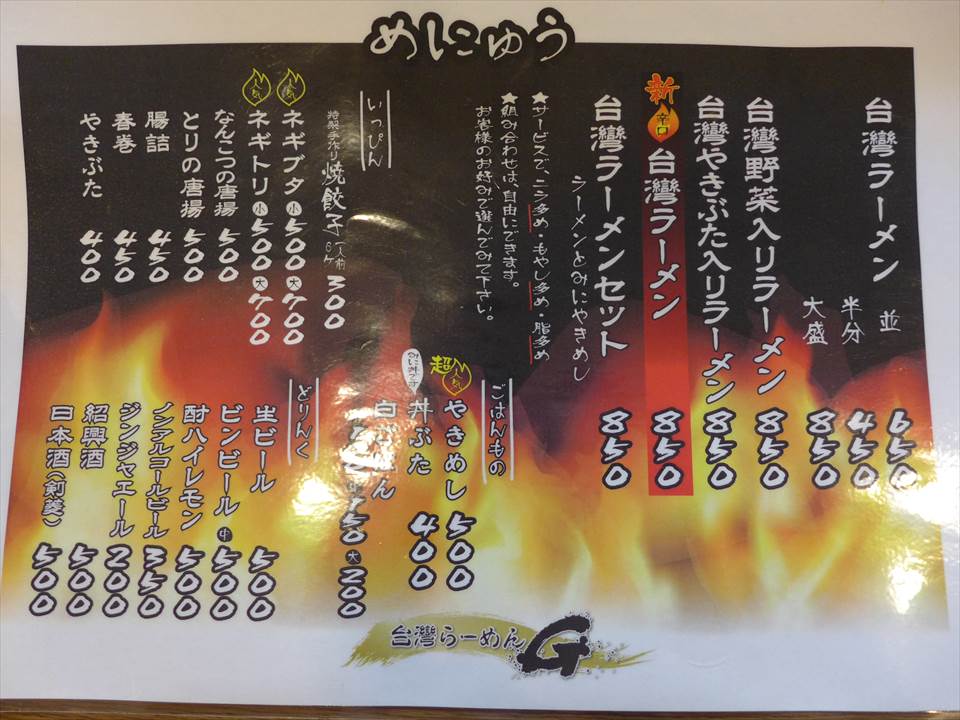 めにゅう
台灣ラーメン
並 650
半分 450
大盛 850
台灣野菜入りラーメン 850
台灣やきぶた入りラーメン 850
新 辛口 台灣ラーメン 850
台灣ラーメンセット 850
ラーメンとみにやきめし
★サービスで、ニラ多め・もやし多め・脂多め
★組み合わせは、自由にできます。
お客様のお好みで選んでみて下さい。
いっぴん
特製手作り 焼餃子 一人前 6ケ 300
人気 ネギブタ 小 500 大 700
人気 ネギトリ 小 500 大 700
なんこつの唐揚 500
とりの唐揚 500
腸詰 450
春巻 450
やきぶた 400
ごはんもの
超人気 やきめし 500
丼ぶた 400
白 ん 50 大 200
どりんく
生ビール 500
ビンビール 中 500
酎ハイレモン 500
ノンアルコールビール 350
ジンジャエール 200
紹興酒 500
日本酒(前葵) 500
台灣らーめんG